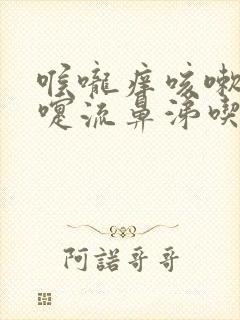 喉嚨癢咳嗽
嚏流鼻涕喫
阿諾哥哥